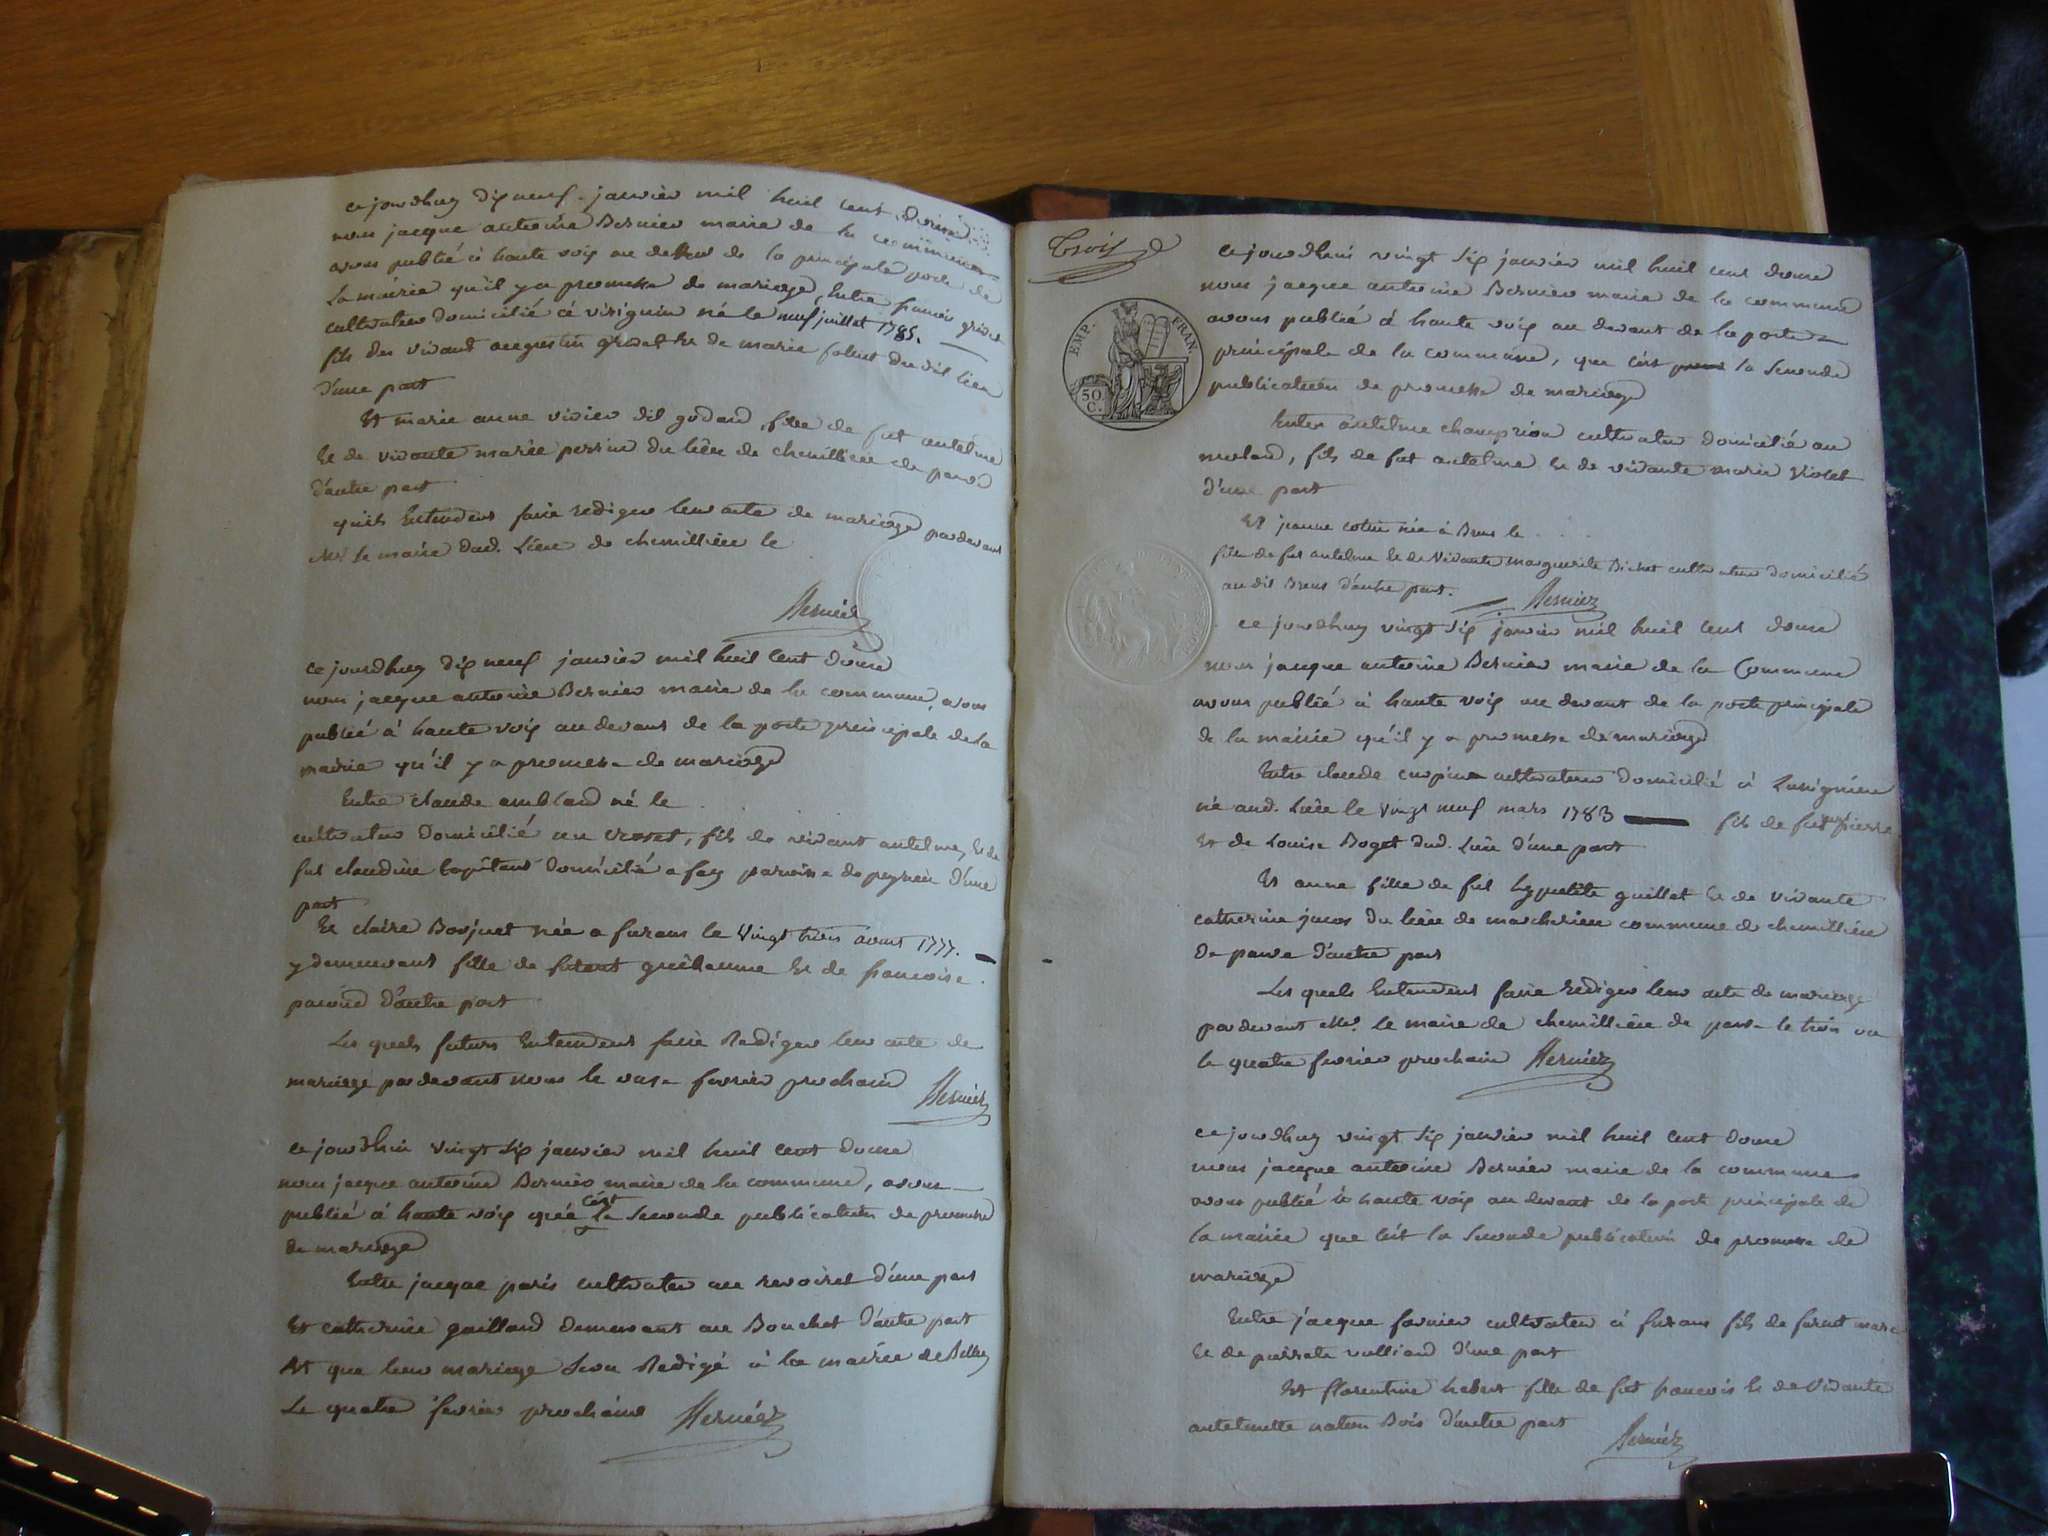 ce jourdhuy dix neuf janvier mil huit cent douze
nous jacque antoine Bernier maire de la commune
avons publié à haute voix au devant de la principale porte de
la mairie qu'il y a promesse de mariage, Entre francois grivet
cultivateur domicilié à virignin né le neuf juillet 1785.
fils du vivant augustin grivet Et de marie du dit lieu
d'une part
Et marie anne vivier dit godard, fille de fut antelme
Et de vivante marie perrin du lieu de chemillieu de parve
d'autre part
qu'ils Entendent faire rediger leur acte de mariage pardevant
Mr. le maire dud. Lieu de chemillieu le
Bernier
ce jourdhuy dix neuf janvier mil huit cent douze
nous jacque antoine Bernier maire de la commune, avons
publié à haute voix au devant de la porte principale de la
mairie qu'il y a promesse de mariage
Entre claude amblard né le
cultivateur domicilié au, fils de vivant antelme, Et de
fut claudine domicilié a fay paroisse de peyrieu d'une
part
Et claire Borjuet née a furans le vingt trois aout 1777.
y demeurant fille de guilaume Et de francoise
d'autre part
Les quels futurs Entendent faire Rediger leur acte de
mariage pardevant nous le onze fevrier prochain Bernier
ce jourdhui vingt six janvier mil huit cent douze
nous jacque antoine Bernier maire de la commune, avons
publié à haute voix que c'est la seconde publication de promesse
de mariage
Entre jacque paris cultivateur au revoiret d'une part
Et catherine gaillard demeurant au Bouchet d'autre part
Et que leur mariage sera Redigé à la mairie de Belley
Le quatre fevrier prochain Bernier
Trois
EMP. FRAN.
50 C.
ce jourdhui vingt six janvier mil huit cent douze
nous jacque antoine Bernier maire de la commune
avons publié à haute voix au devant de la porte
principale de la commune, que c'est la seconde
publication de promesse de mariage
Entre antelme champriou cultivateur domicilié au
, fils de fut antelme Et de vivante marie violet
d'une part
Et jeanne cotin née à Brens le
fille de fut antelme Et de vivante marguerite Bichet cultivateur domicilié
au dit Brens d'autre part. Bernier
ce jourdhuy vingt six janvier mil huit cent douze
nous jacque antoine Bernier maire de la Commune
avons publié à haute voix au devant de la porte principale
de la mairie qu'il y a promesse de mariage
Entre claude crepin cultivateur domicilié à
né aud. Lieu le vingt neuf mars 1783 fils de fut pierre
Et de Louise Boget dud. Lieu d'une part
Et anne fille de fut hypolite guillet Et de vivante
catherine jacos du lieu de marcherieu commune de chemillieu
De parve d'autre part
Les quels Entendent faire Rediger leur acte de mariage
pardevant Mr. le maire de chemillieu de parve le trois ou
le quatre fevrier prochain Bernier
ce jourdhuy vingt six janvier mil huit cent douze
nous jacque antoine Bernier maire de la commune
avons publié à haute voix au devant de la porte principale de
la mairie que c'est la seconde publication de promesse de
mariage
Entre jacque fornier cultivateur à furans fils de marc
Et de pierrete valliend d'une part
Et florentine hebert fille de fut francois Et de vivante
antelmette Bois d'autre part
Bernier